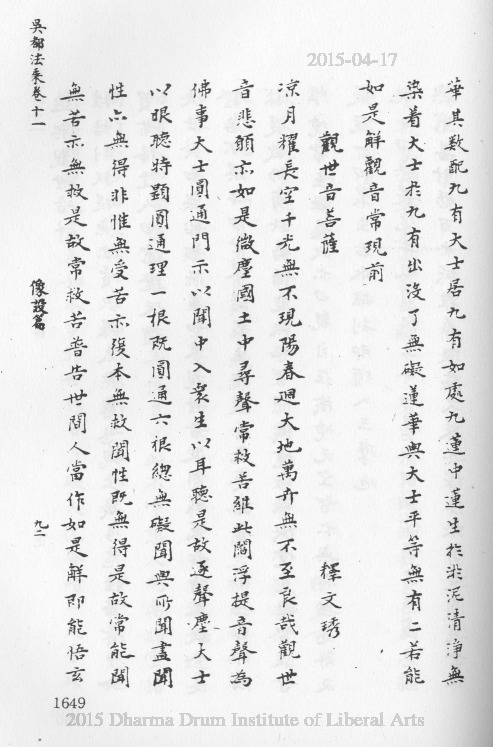 2015-04-17
華其數配九有大士居九有如處九蓮中蓮生於淤泥清淨無
染着大士於九有出沒了無礙蓮華與大士平等無有二若能
如是解觀音常現前
觀世音菩薩 釋文琇
涼月耀長空千光無不現陽春迴大地萬卉無不至良哉觀世
音悲願亦如是微塵國土中尋聲常救苦維此閻浮提音聲為
佛事大士圓通門示以聞中入衆生以耳聽是故逐聲塵大士
以眼聽特顯圓通理一根既圓通六根總無礙聞與所聞盡聞
性亦無得非惟無受苦亦復本無救聞性既無得是故常能聞
無苦亦無救是故常救苦普告世間人當作如是解即能悟玄
吳都法乘卷十一 像設篇 九二
1649
2015 Dharma Drum Institute of Liberal Arts